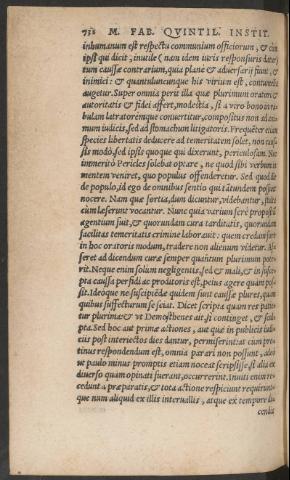 732 M. FAB. QVINTIL. INSTIT.
inhumanum est respectu communium officiorum, & cùm
ipsi qui dicit, inutile (nam idem iuris responsuris
tum caussæ contrarium, quia planè & aduersarij fiunt, &
inimici: & quantuluncunque his virium est, contumelia
augetur. Super omnia perit illa quæ plurimum oratori &
autoritatis & fidei affert, modestia, si à viro bono in ra-
bulam latratorémque conuertitur, compositus non ad ani-
mum iudicis, sed ad stomachum litigatoris. Frequẽter etiam
species libertatis deducere ad temeritatem solet, non caus-
sis modò, sed ipsis quoque qui dixerunt, periculosam. Nec
immeritò Pericles solebat optare, ne quod sibi verbum in
mentem veniret, quo populus offenderetur. Sed quod ille
de populo, id ego de omnibus sentio qui tãtundem possunt
nocere. Nam quæ fortia, dum dicuntur, videbantur, stulta
cùm læserunt vocantur. Nunc quia varium ferè propositũ
agentium fuit, & quorundam cura tarditatis, quorundam
facilitas temeritatis crimine laborauit: quem credam fieri
in hoc oratoris modum, tradere non alienum videtur. Af-
feret ad dicendum curæ semper quantum plurimum pote-
rit. Neque enim solùm negligentis, sed & mali, & in susce-
pta caussa perfidi ac proditoris est, peius agere quàm pos-
sit. Ideoque ne suscipiẽdæ quidem sunt caussæ plures, quàm
quibus suffecturum se sciat. Dicet scripta quàm res patie-
tur plurima: & vt Demosthenes ait, si continget, & scul-
pta. Sed hoc aut primæ actiones, aut quæ in publicis iudi-
ciis post interiectos dies dantur, permiserint: at cùm pro-
tinus respondendum est, omnia parari non possunt, adeò
vt paulo minus promptis etiam noceat scripsisse, si alia ex
diuerso quàm opinati fuerant, occurrerint. Inuiti enim re-
cedunt à præparatis, & tota actione respiciunt requirunt-
que num aliquid ex illis interuallis, atque ex tempore di-
cendis